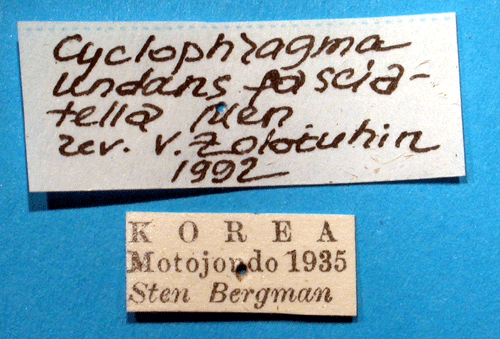 Cyclophragma
undans fascia-
tella Men
rev. V. Zolotuhin
1992
KOREA
Motojondo 1935
Sten Bergman